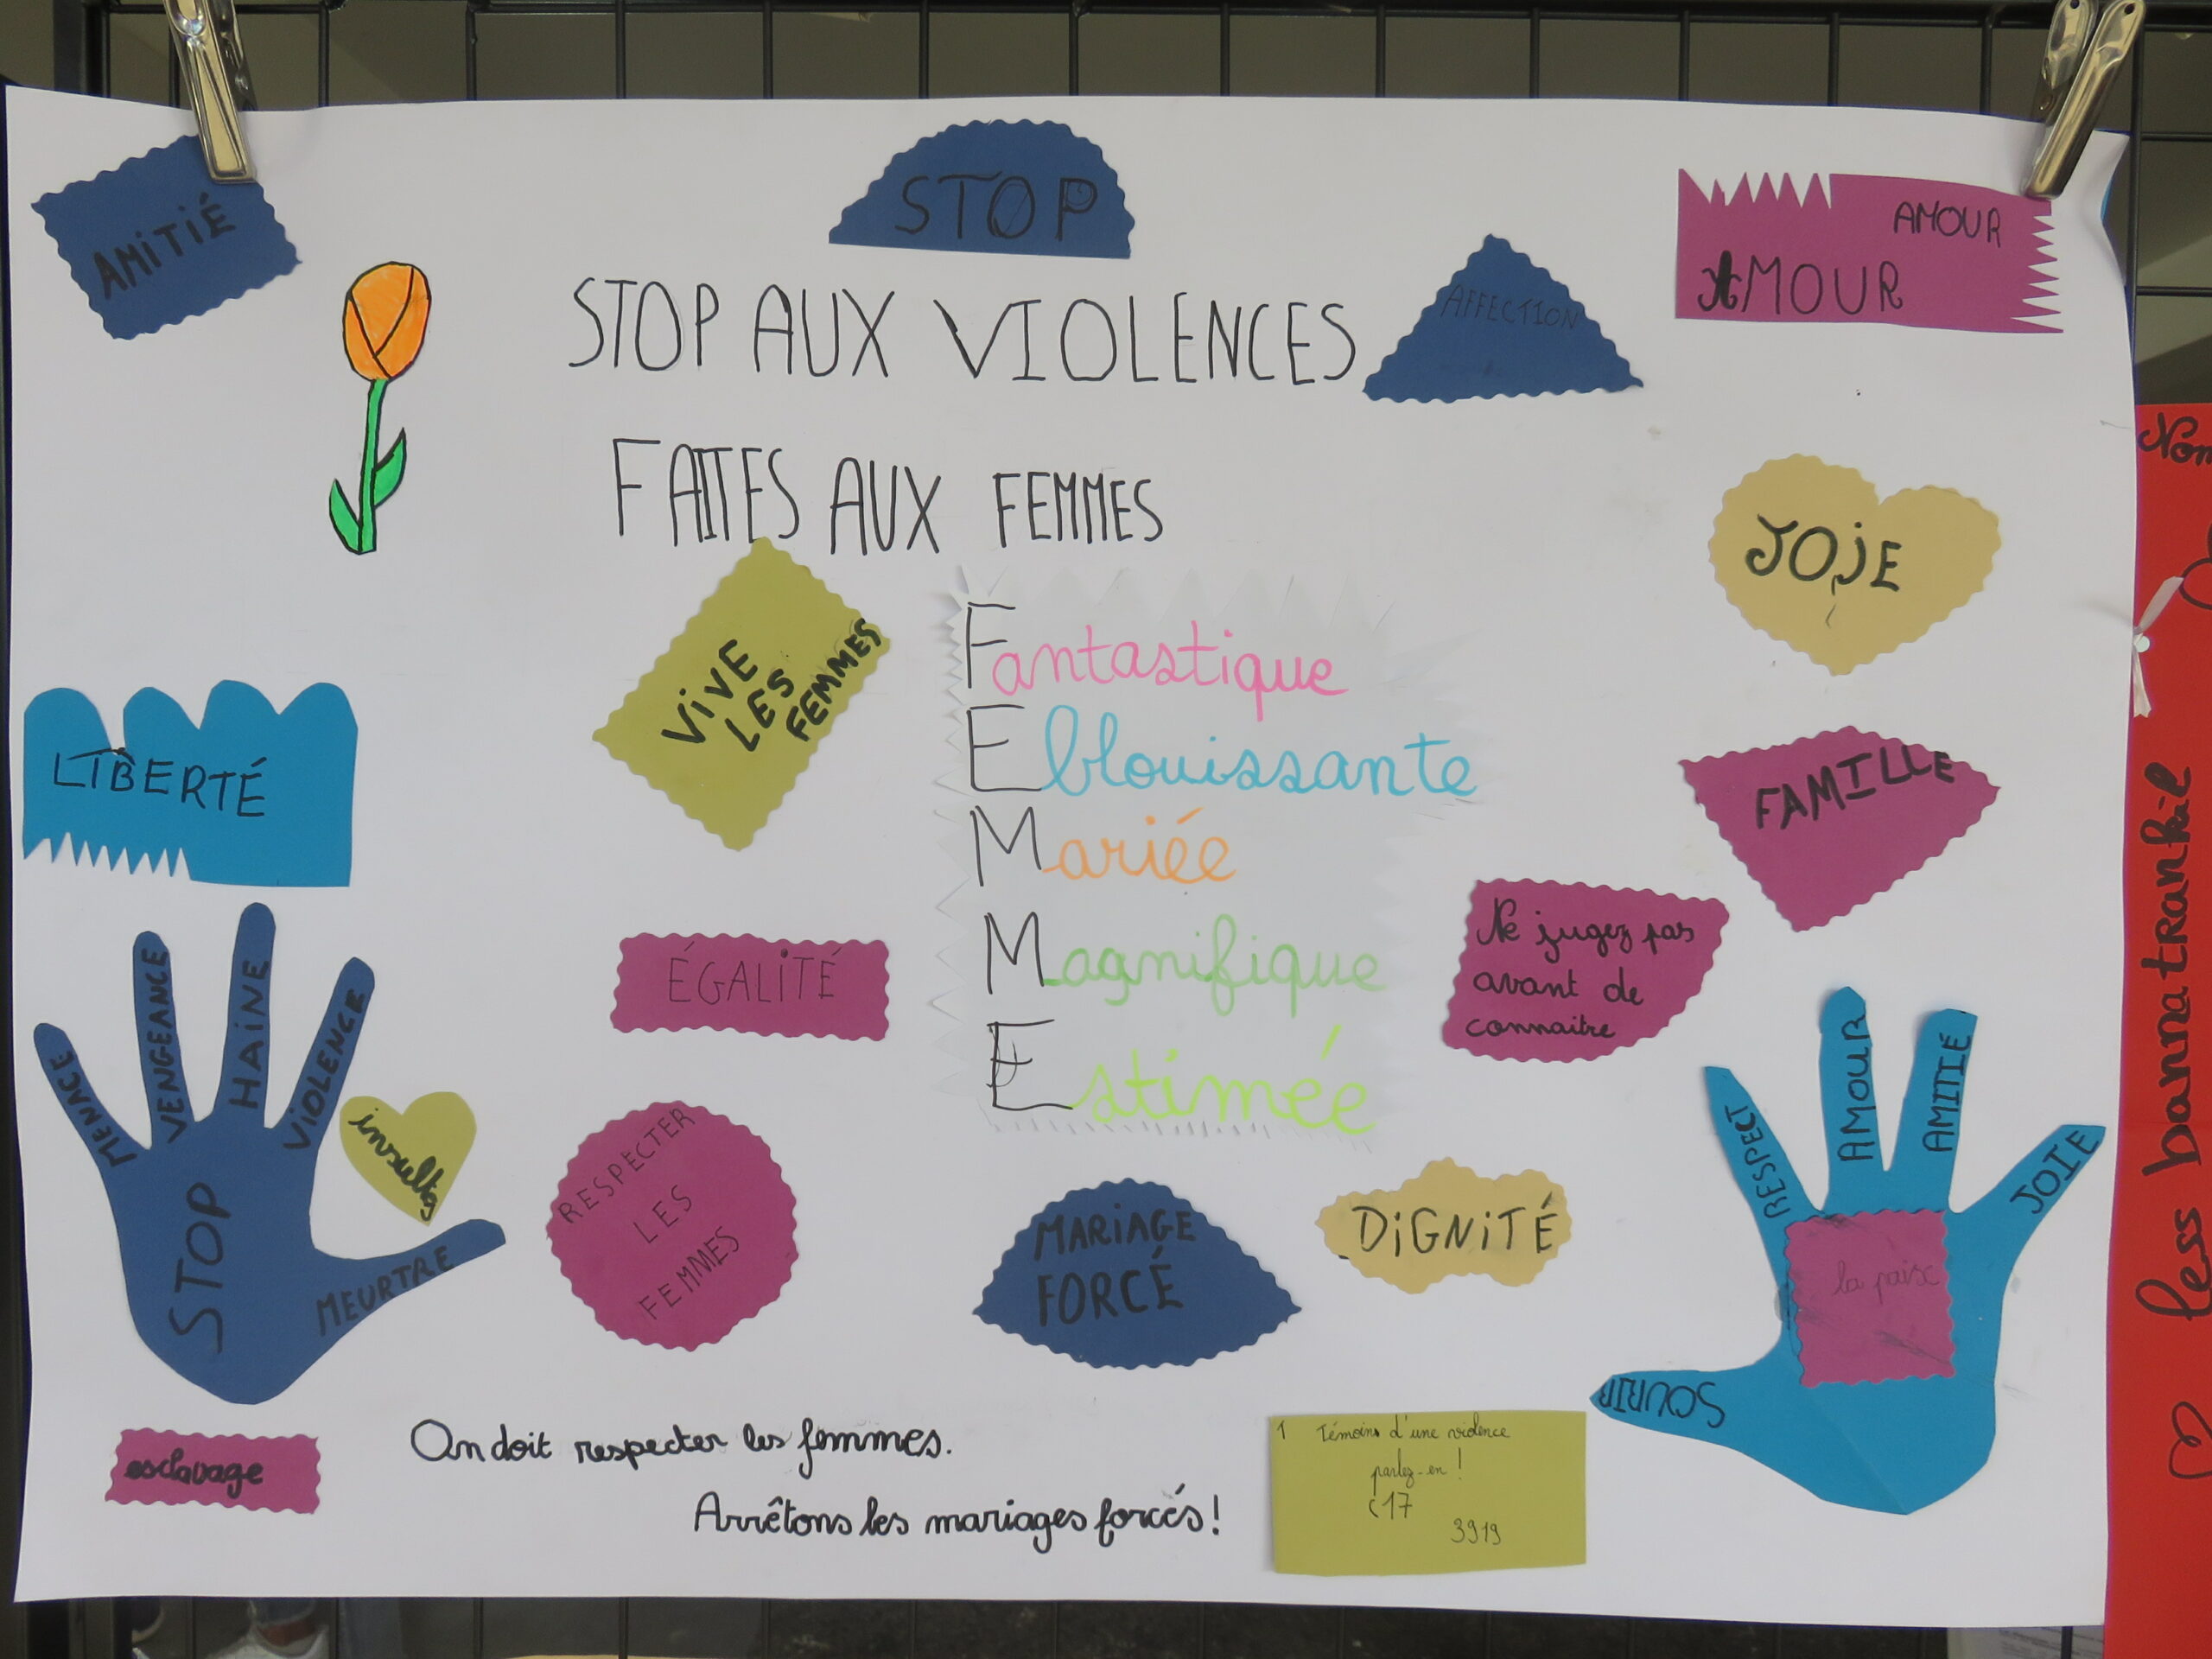 AMiTiÉ
STOP
AMOUR
AMOUR
AFFECTION
STOP AUX VIOLENCES
FAITES AUX FEMMES
JOiE
ViVE
LES
FEMMES
Fantastique
Eblouissante
Mariée
Magnifique
Estimée
LIBERTÉ
FAMILLE
ÉGALiTÉ
Ne jugez pas
avant de
connaitre
MENACE
VENGEANCE
HAiNE
ViOLENCE
MEURTRE
STOP
RESPECTER
LES
FEMMES
MARiAGE
FORCÉ
DiGNiTÉ
RESPECT
AMOUR
AMITIE
JOIE
SOURIR
la paix
esclavage
On doit respecter les femmes.
Arrêtons les mariages forcés!
Témoins d'une violence
parlez-en!
17
3919
Non
less bannatrankil